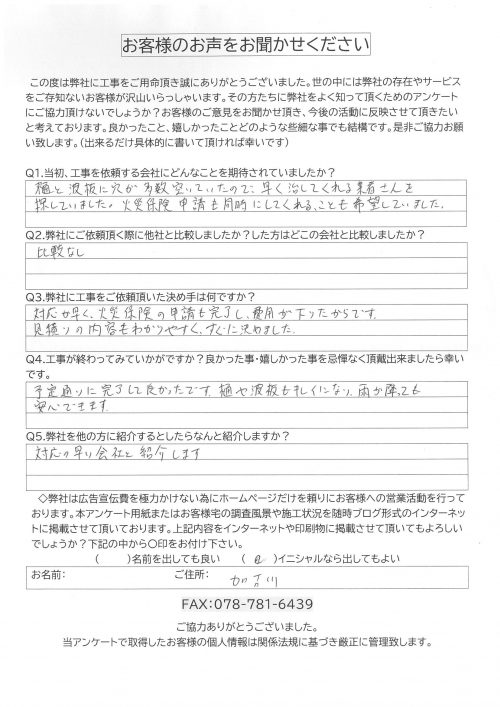 お客様のお声をお聞かせください
この度は弊社に工事をご用命頂き誠にありがとうございました。世の中には弊社の存在やサービス
をご存知ないお客様が沢山いらっしゃいます。その方たちに弊社をよく知って頂くためのアンケート
にご協力頂けないでしょうか？お客様のご意見をお聞かせ頂き、今後の活動に反映させて頂きたい
と考えております。良かったこと、嬉しかったことどのような些細な事でも結構です。是非ご協力お願
い致します。（出来るだけ具体的に書いて頂ければ幸いです）
Q1.当初、工事を依頼する会社にどんなことを期待されていましたか？
樋と波板に穴が多数空いていたので、早く治してくれる業者さんを
探していました。火災保険申請も同時にしてくれる、ことも希望していました。
Q2.弊社にご依頼頂く際に他社と比較しましたか？した方はどこの会社と比較しましたか？
比較なし
Q3.弊社に工事をご依頼頂いた決め手は何ですか？
対応が早く、火災保険の申請も完了し、費用が下りたからです。
見積りの内容もわかりやすく、すぐに決めました。
Q4.工事が終わってみていかがですか？良かった事・嬉しかった事を忌憚なく頂戴出来ましたら幸い
です。
予定通りに完了して良かったです。樋や波板もキレイになり、雨が降っても
安心できます。
Q5.弊社を他の方に紹介するとしたらなんと紹介しますか？
対応の早い会社と紹介します
◇弊社は広告宣伝費を極力かけない為にホームページだけを頼りにお客様への営業活動を行って
おります。本アンケート用紙またはお客様宅の調査風景や施工状況を随時ブログ形式のインターネッ
トに掲載させて頂いております。上記内容をインターネットや印刷物に掲載させて頂いてもよろしい
でしょうか？下記の中から〇印をお付け下さい。
（　　）名前を出しても良い　（　　）イニシャルなら出してもよい
お名前：　ご住所：　加古川
FAX：078-781-6439
ご協力ありがとうございました。
当アンケートで取得したお客様の個人情報は関係法規に基づき厳正に管理致します。